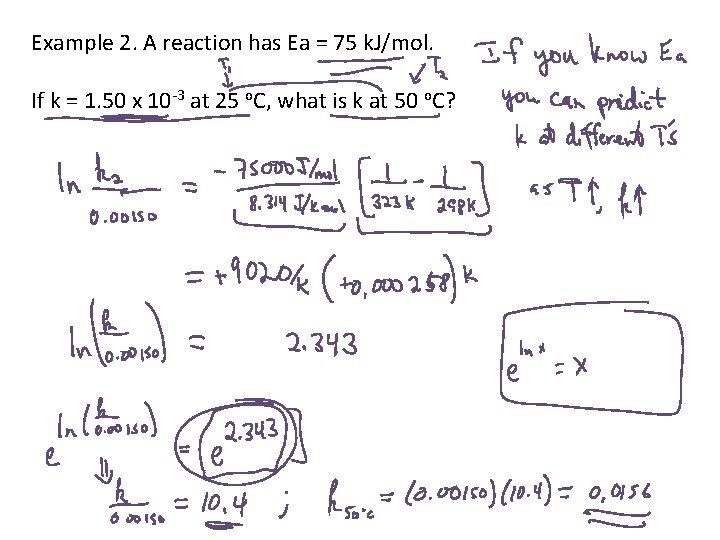 Example 2. A reaction has Ea = 75 kJ/mol.
If you know Ea
T₁ T₂
If k = 1.50 x 10⁻³ at 25 ºC, what is k at 50 ºC?
you can pridict
k at different T's
ln k₂/0.00150 = -75000 J/mol / 8.314 J/K mol [1/323K - 1/298K]
as T↑, k↑
= +9020/K (+0.000258) K
ln(k/0.00150) = 2.343
e^(ln x) = x
e^(ln(k/0.00150)) = e^(2.343)
⇓
k/0.00150 = 10.4 ; k₅₀°C = (0.00150)(10.4) = 0.0156